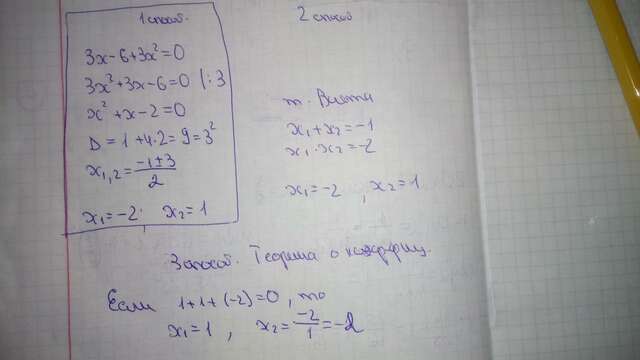 1 способ.
3x-6+3x²=0
3x²+3x-6=0 |:3
x²+x-2=0
D=1+4·2=9=3²
x₁,₂=(-1±3)/2
x₁=-2; x₂=1
2 способ
т. Виета
x₁+x₂=-1
x₁·x₂=-2
x₁=-2, x₂=1
3 способ. Теорема о коэффиц.
Если 1+1+(-2)=0, то
x₁=1, x₂=-2/1=-2